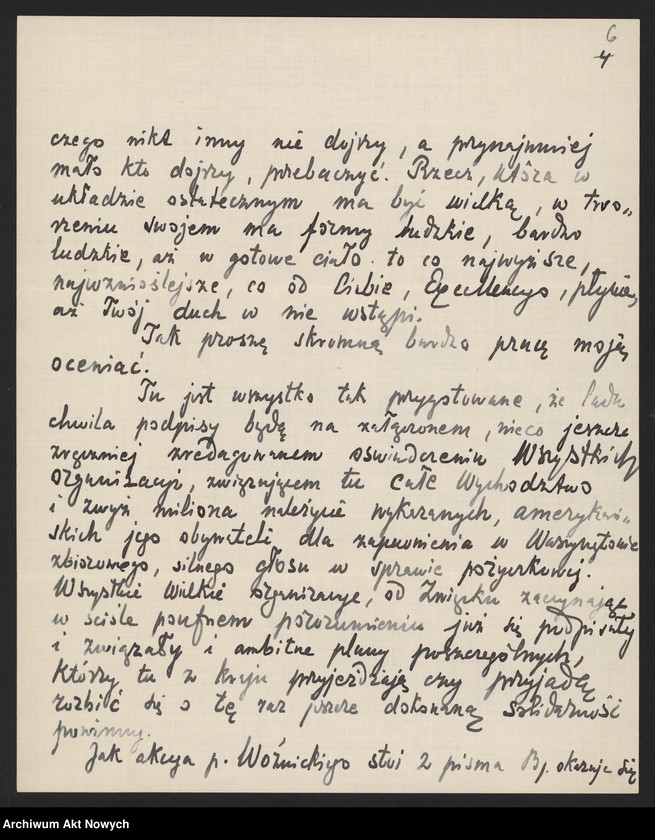 6
4
czego nikt inny nie dojrzy, a przynajmniej
mało kto dojrzy, przebaczyć. Rzecz, która w
układzie ostatecznym ma być wielką, w two„
rzeniu swojem ma formy ludzkie, bardzo
ludzkie, aż w gotowe ciało to co najwyższe,
najwznioślejsze, co od Ciebie, Excellencyo, płynie,
aż Twój duch w nie wstąpi.
Tak proszę skromną bardzo pracę moją
oceniać.
Tu jest wszystko tak przygotowane, że lada
chwila podpisy będą na załączonem, nieco jeszcze
zręczniej zredagowanem oświadczeniu Wszystkich
Organizacji, związującem tu całe Wychodztwo
i zwyż miliona należycie wykazanych, amerykań„
skich jego obywateli dla zapewnienia w Waszyngtonie
zbiorowego, silnego głosu w sprawie pożyczkowej.
Wszystkie wielkie organizacye, od Związku zacząwszy
w ściśle poufnem porozumieniu już się podpisały
i związały i ambitne plany poszczególnych,
którzy tu z kraju przyjeżdżają czy przyjadą
rozbić się o tę raz jeszcze dokonaną solidarność
powinny.
Jak akcya p. Woźnickiego stoi z pisma Bj. okazuje się
Archiwum Akt Nowych